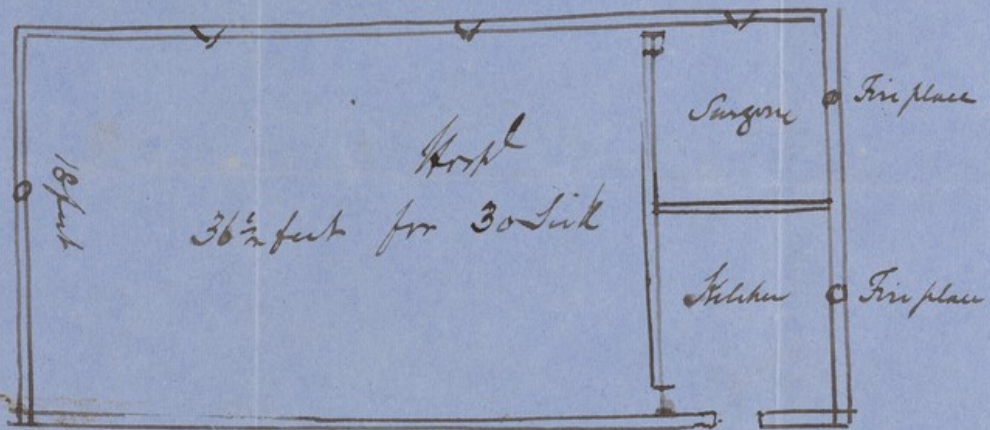 18 feet
Hospl
36½ feet for 30 Sick
Surgone
Fire place
Kitchen
Fire place